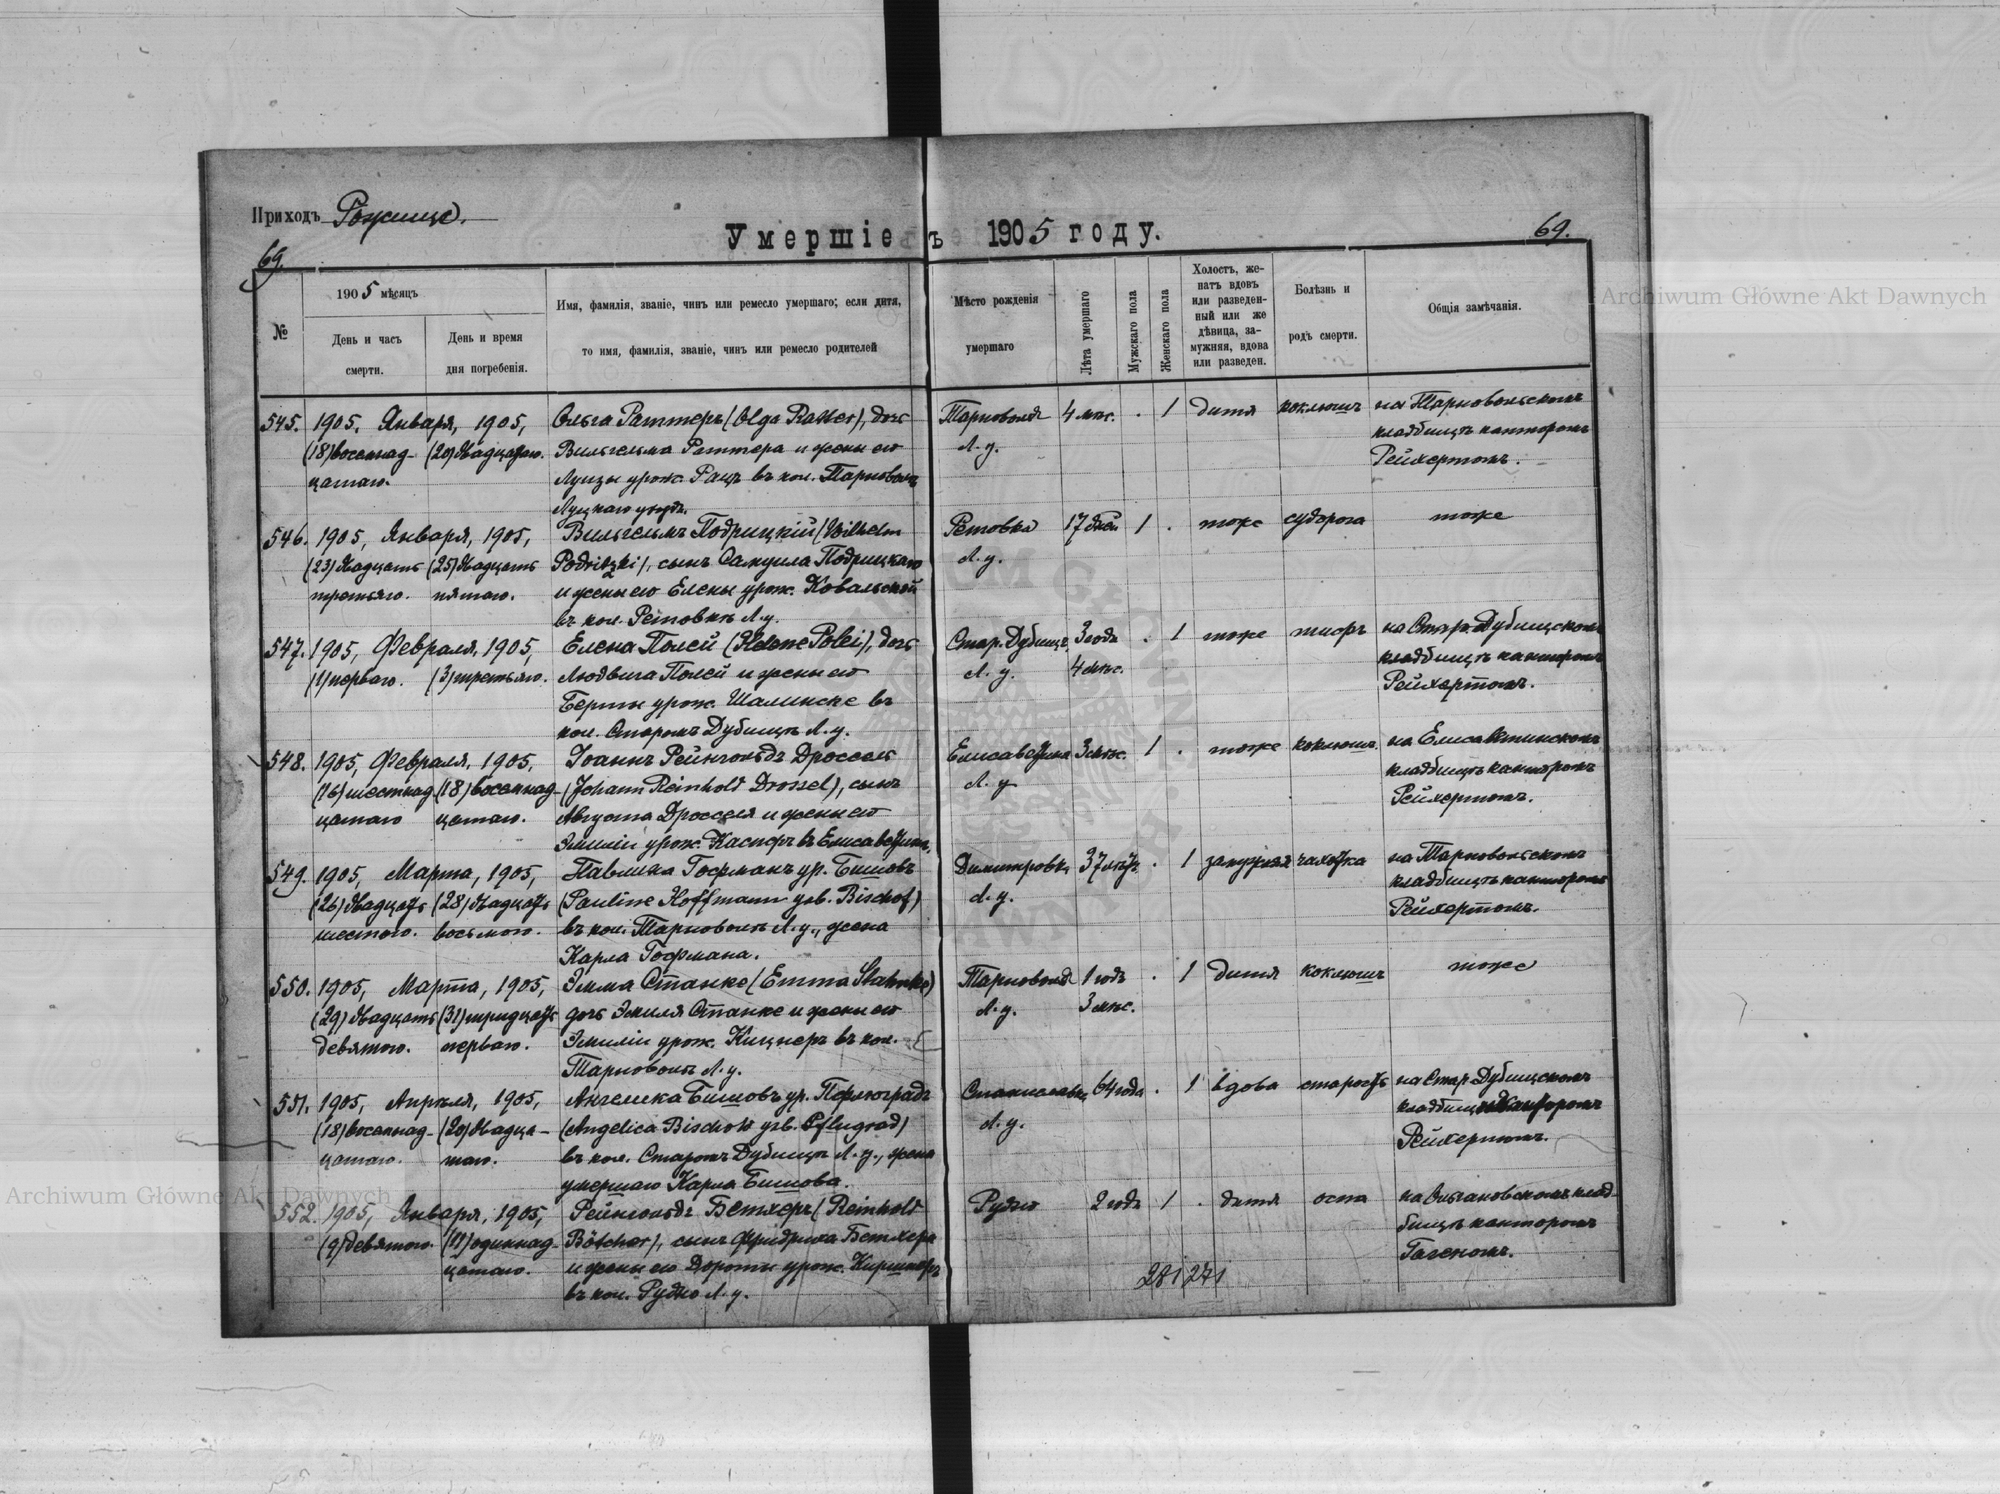 Приходъ Рожище.
Умершіе въ 1905 году.
69.
69.
№
1905 мѣсяцъ
День и часъ смерти.
День и время дня погребенія.
Имя, фамилія, званіе, чинъ или ремесло умершаго; если дитя,
то имя, фамилія, званіе, чинъ или ремесло родителей
Мѣсто рожденія
умершаго
Лѣта умершаго
Мужскаго пола
Женскаго пола
Холостъ, же-
натъ вдовъ
или разведен-
ный или же
дѣвица, за-
мужняя, вдова
или разведен.
Болѣзнь и
родъ смерти.
Общія замѣчанія.
545. 1905, Января, 1905, Ольга Раттеръ (Olga Ratter), дочь Тарноволя 4 мѣс. . 1 дитя коклюшъ на Тарновольскомъ
(18) восемнад- (20) двадцатаго. Вильгельма Раттера и жены его Л. у. кладбищѣ канторомъ
цатаго. Луизы урож. Рацъ въ кол. Тарноволѣ Рейхертомъ.
Луцкаго уѣзда.
546. 1905, Января, 1905, Вильгельмъ Подрицкій (Wilhelm Ретовка 17 дней 1 . тоже судорога тоже
(23) двадцать (25) двадцать Podritzki), сынъ Самуила Подрицкаго Л. у.
третьяго. пятаго. и жены его Елены урож. Ковальской
въ кол. Ретовкѣ Л. у.
547. 1905, Февраля, 1905, Елена Полей (Helene Polei), дочь Стар. Дубищѣ 3 года . 1 тоже тифъ на Стар. Дубищскомъ
(1) перваго. (3) третьяго. Людвига Полей и жены его Л. у. 4 мѣс. кладбищѣ канторомъ
Берты урож. Шалинске въ Рейхертомъ.
кол. Старомъ Дубищѣ Л. у.
548. 1905, Февраля, 1905, Іоаннъ Рейнгольдъ Дроссель Елисаветина 3 мѣс. 1 . тоже коклюшъ. на Елисаветинскомъ
(16) шестнад- (18) восемнад- (Johann Reinhold Drossel), сынъ Л. у кладбищѣ канторомъ
цатаго цатаго. Августа Дросселя и жены его Рейхертомъ.
Эмиліи урож. Касперъ въ Елисаветинѣ.
549. 1905, Марта, 1905, Павлина Гофманъ ур. Бишовъ Димитровка 37 лѣтъ. . 1 замужняя чахотка на Тарновольскомъ
(26) двадцать (28) двадцать (Pauline Hoffmann geb. Bischof) Л. у. кладбищѣ канторомъ
шестого. восьмого. въ кол. Тарноволѣ Л. у., жена Рейхертомъ.
Карла Гофмана.
550. 1905, Марта, 1905, Эмма Станке (Emma Stahnke) Тарноволя 1 годъ . 1 дитя коклюшъ тоже
(29) двадцать (31) тридцать дочь Эмиля Станке и жены его Л. у. 3 мѣс.
девятого. перваго. Эмиліи урож. Кицнеръ въ кол.
Тарноволѣ Л. у.
551. 1905, Апрѣля, 1905, Ангелика Бишовъ ур. Пфлюградъ Станиславка, 64 года . 1 вдова старость на Стар. Дубищскомъ
(18) восемнад- (20) двадца- (Angelica Bischof geb. Pflugrad) Л. у. кладбищѣ канторомъ
цатаго. таго. въ кол. Старомъ Дубищѣ Л. у., жена Рейхертомъ.
умершаго Карла Бишова.
552. 1905, Января, 1905, Рейнгольдъ Бетхеръ (Reinhold Рудно 2 года 1 . дитя оспа на Ольгановскомъ клад-
(9) девятого. (11) одиннад- Bötcher), сынъ Фридриха Бетхера бищѣ канторомъ
цатаго. и жены его Доротеи урож. Киршнеръ Гагеномъ.
въ кол. Рудно Л. у.
281 271
Archiwum Główne Akt Dawnych
Archiwum Główne Akt Dawnych